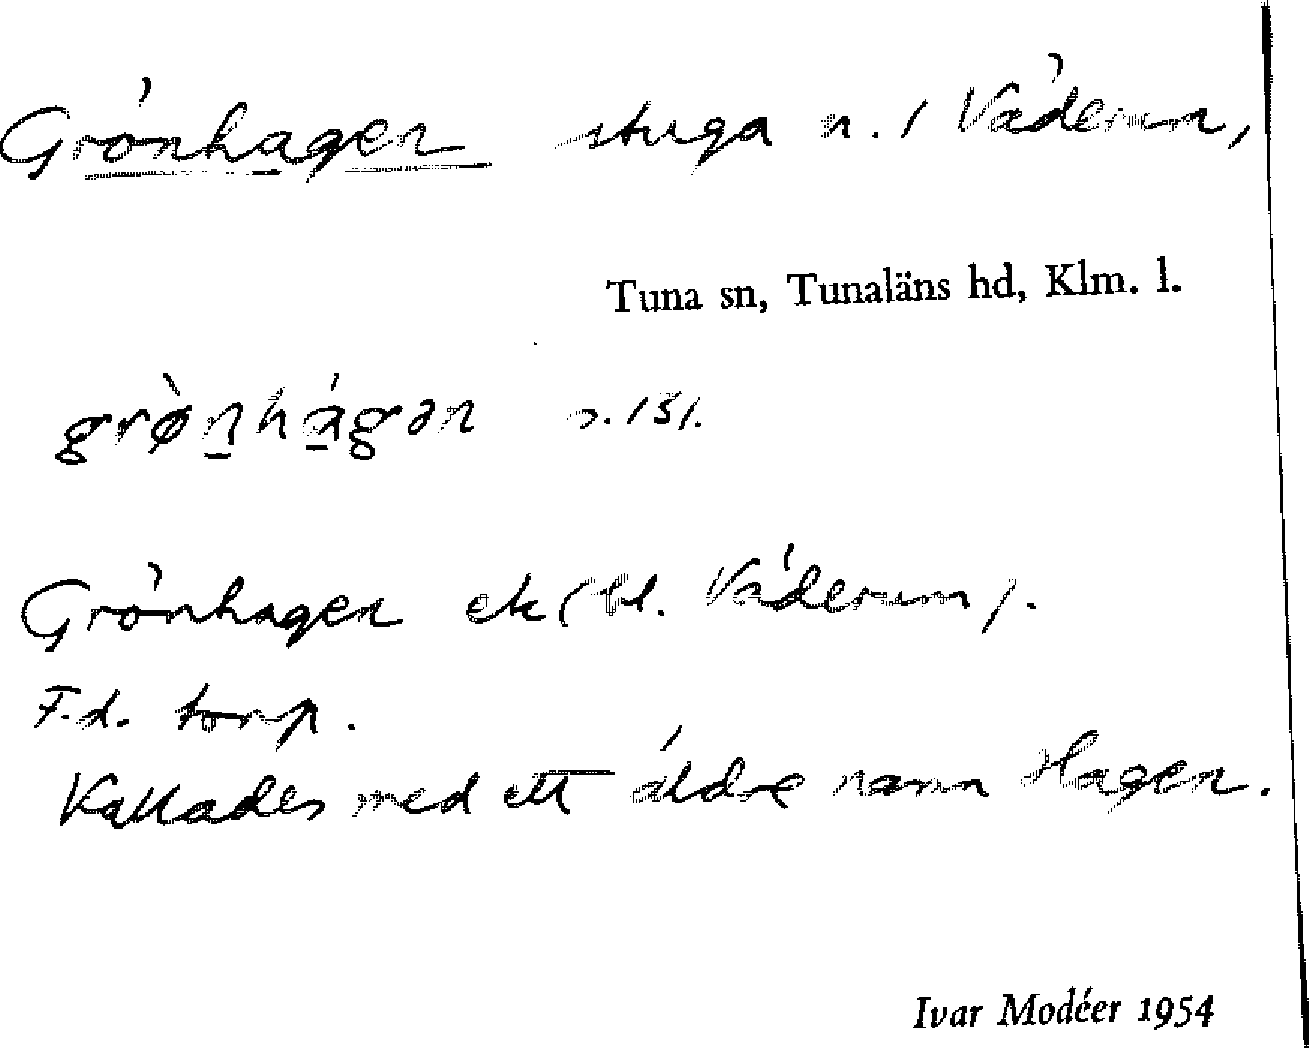 Grönhagen stuga n. i Väderum,
Tuna sn, Tunaläns hd, Klm. l.
grø̀n̠há̠gən
Grönhagen ek (bl. Väderum).
F.d. torp.
Kallades med ett äldre namn Hagen.
Ivar Modéer 1954